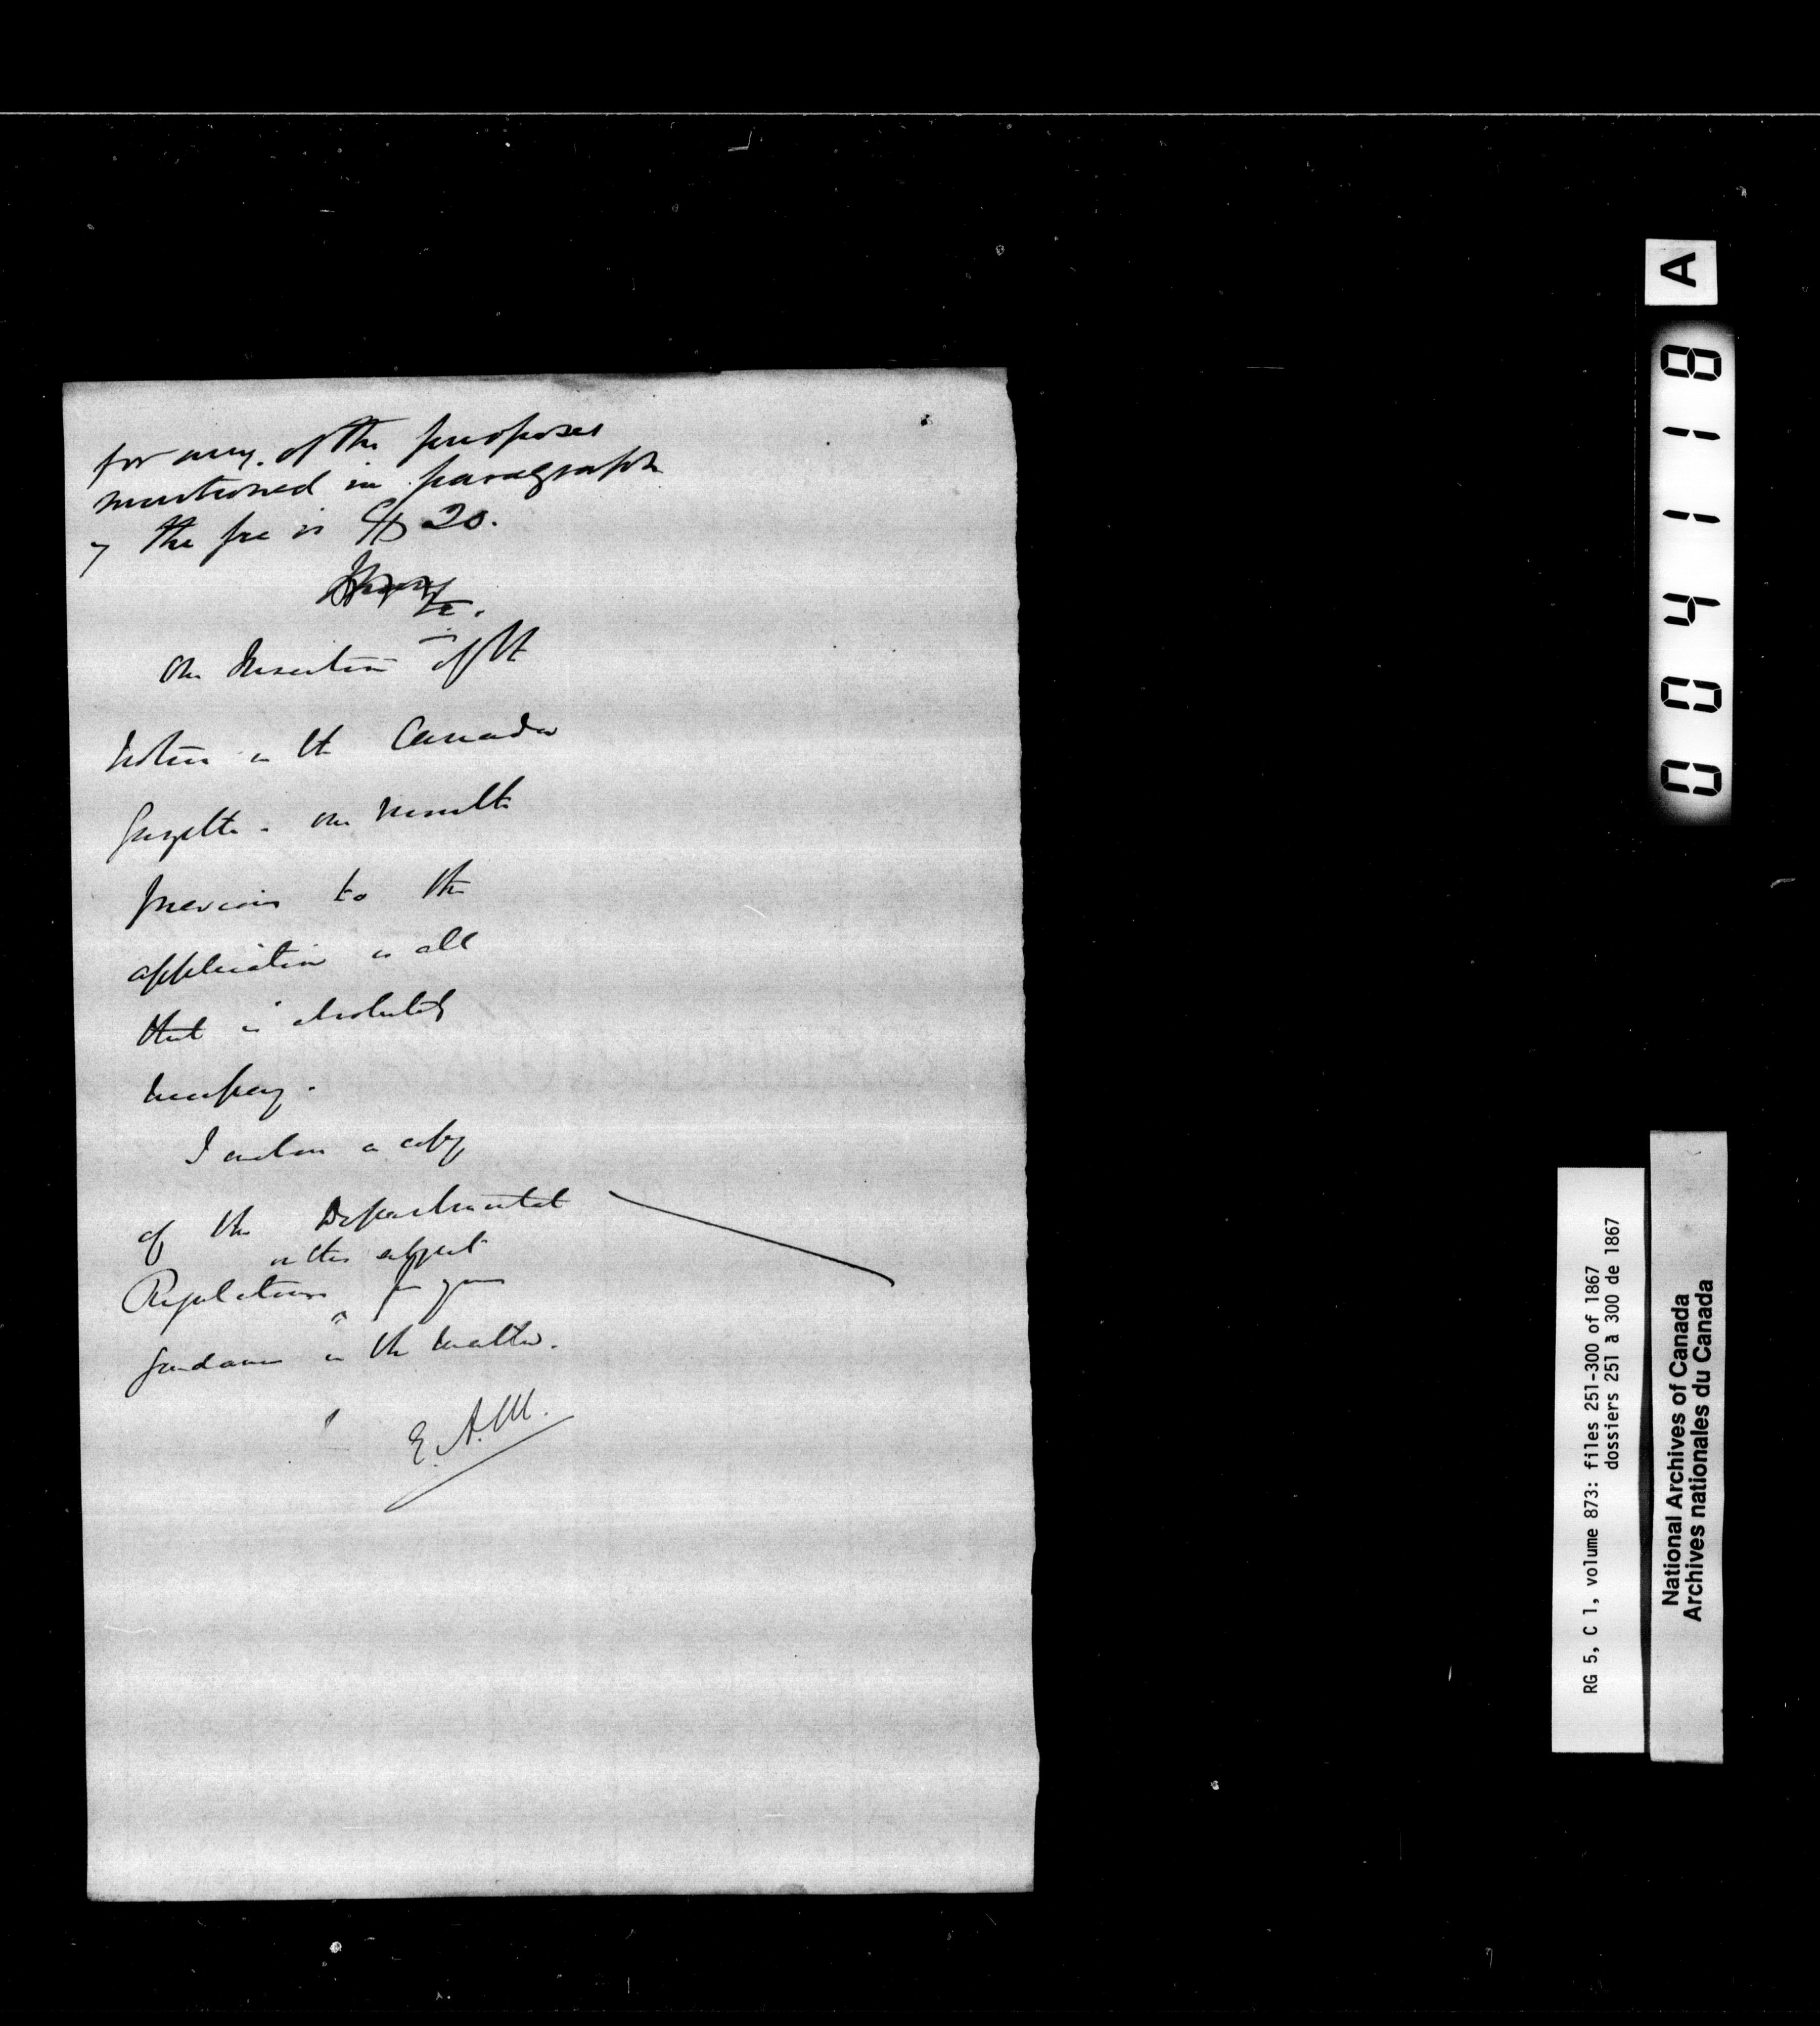 for any of the purposes
mentioned in paragraph
7 the fee is $20.
One Insertion of the
Notice in the Canada
Gazette - one month
previous to the
application is all
that is absolutely
necessary.
I enclose a copy
of the Departmental
on the subject
Regulations ^ for your
guidance in the matter.
E. A. M.
A
004118
RG 5, C 1, volume 873: files 251-300 of 1867
dossiers 251 à 300 de 1867
National Archives of Canada
Archives nationales du Canada